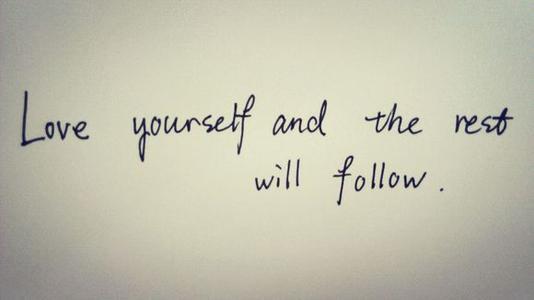 Love yourself and the rest
will follow.